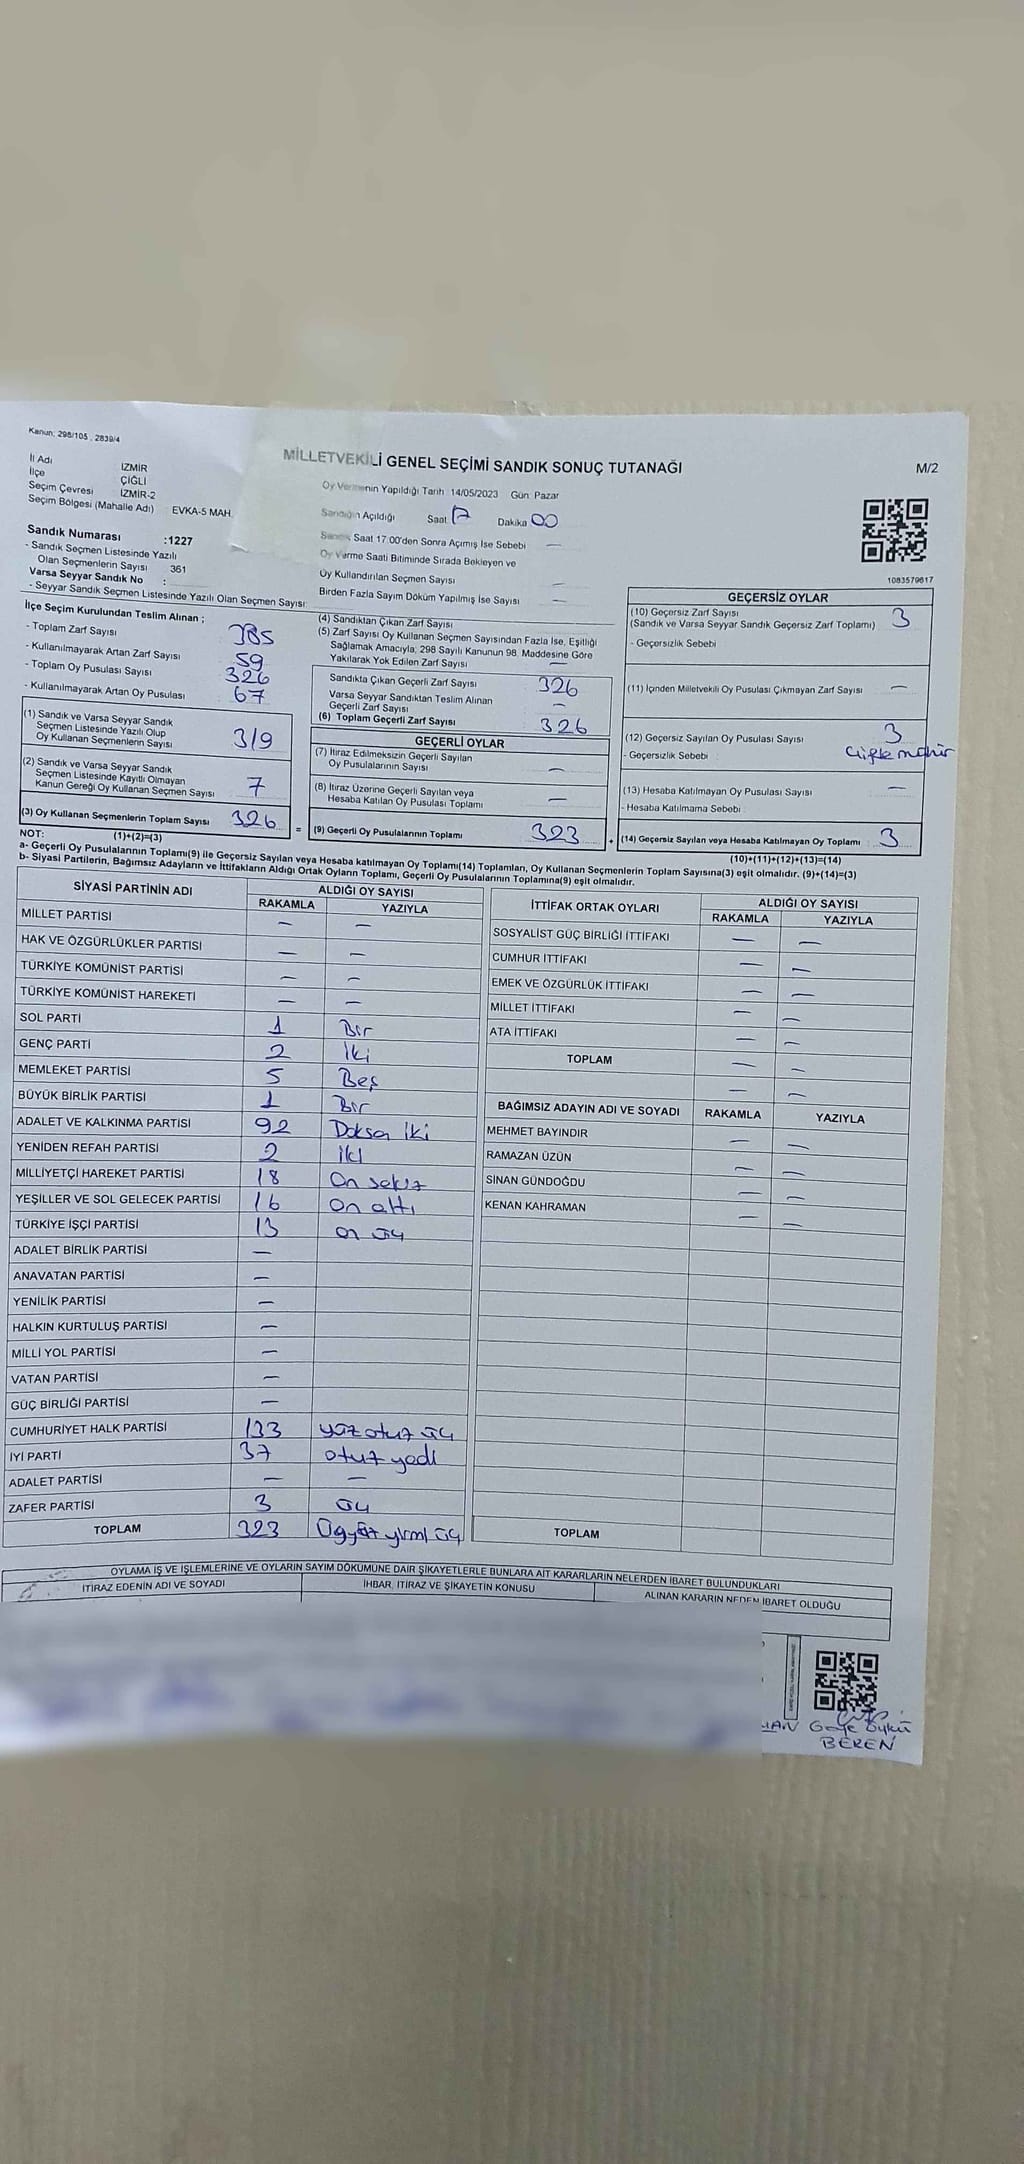 Kanun: 298/105 , 2839/4
MİLLETVEKİLİ GENEL SEÇİMİ SANDIK SONUÇ TUTANAĞI
M/2
İl Adı İZMİR
İlçe ÇİĞLİ
Seçim Çevresi İZMİR-2
Seçim Bölgesi (Mahalle Adı) EVKA-5 MAH.
Oy Vermenin Yapıldığı Tarih 14/05/2023 Gün: Pazar
Sandığın Açıldığı Saat 17 Dakika 00
Sandık Saat 17:00'den Sonra Açımış İse Sebebi —
Oy Verme Saati Bitiminde Sırada Bekleyen ve
Oy Kullandırılan Seçmen Sayısı —
Birden Fazla Sayım Döküm Yapılmış İse Sayısı —
1083579617
Sandık Numarası :1227
- Sandık Seçmen Listesinde Yazılı
Olan Seçmenlerin Sayısı 361
Varsa Seyyar Sandık No :
- Seyyar Sandık Seçmen Listesinde Yazılı Olan Seçmen Sayısı:
İlçe Seçim Kurulundan Teslim Alınan ;
- Toplam Zarf Sayısı 385
- Kullanılmayarak Artan Zarf Sayısı 59
- Toplam Oy Pusulası Sayısı 326
- Kullanılmayarak Artan Oy Pusulası 67
(1) Sandık ve Varsa Seyyar Sandık
Seçmen Listesinde Yazılı Olup
Oy Kullanan Seçmenlerin Sayısı 319
(2) Sandık ve Varsa Seyyar Sandık
Seçmen Listesinde Kayıtlı Olmayan
Kanun Gereği Oy Kullanan Seçmen Sayısı 7
(3) Oy Kullanan Seçmenlerin Toplam Sayısı 326
(4) Sandıktan Çıkan Zarf Sayısı
(5) Zarf Sayısı Oy Kullanan Seçmen Sayısından Fazla İse, Eşitliği
Sağlamak Amacıyla; 298 Sayılı Kanunun 98. Maddesine Göre
Yakılarak Yok Edilen Zarf Sayısı —
Sandıkta Çıkan Geçerli Zarf Sayısı 326
Varsa Seyyar Sandıktan Teslim Alınan
Geçerli Zarf Sayısı —
(6) Toplam Geçerli Zarf Sayısı 326
GEÇERLİ OYLAR
(7) İtiraz Edilmeksizin Geçerli Sayılan
Oy Pusulalarının Sayısı —
(8) İtiraz Üzerine Geçerli Sayılan veya
Hesaba Katılan Oy Pusulası Toplamı —
= (9) Geçerli Oy Pusulalarının Toplamı 323
GEÇERSİZ OYLAR
(10) Geçersiz Zarf Sayısı 3
(Sandık ve Varsa Seyyar Sandık Geçersiz Zarf Toplamı)
- Geçersizlik Sebebi
(11) İçinden Milletvekili Oy Pusulası Çıkmayan Zarf Sayısı —
(12) Geçersiz Sayılan Oy Pusulası Sayısı 3
- Geçersizlik Sebebi : Çifte mühür
(13) Hesaba Katılmayan Oy Pusulası Sayısı —
- Hesaba Katılmama Sebebi :
+ (14) Geçersiz Sayılan veya Hesaba Katılmayan Oy Toplamı 3
NOT: (1)+(2)=(3)
(10)+(11)+(12)+(13)=(14)
a- Geçerli Oy Pusulalarının Toplamı(9) ile Geçersiz Sayılan veya Hesaba katılmayan Oy Toplamı(14) Toplamları, Oy Kullanan Seçmenlerin Toplam Sayısına(3) eşit olmalıdır. (9)+(14)=(3)
b- Siyasi Partilerin, Bağımsız Adayların ve İttifakların Aldığı Ortak Oyların Toplamı, Geçerli Oy Pusulalarının Toplamına(9) eşit olmalıdır.
SİYASİ PARTİNİN ADI ALDIĞI OY SAYISI
RAKAMLA YAZIYLA
MİLLET PARTİSİ — —
HAK VE ÖZGÜRLÜKLER PARTİSİ — —
TÜRKİYE KOMÜNİST PARTİSİ — —
TÜRKİYE KOMÜNİST HAREKETİ — —
SOL PARTİ 1 Bir
GENÇ PARTİ 2 İki
MEMLEKET PARTİSİ 5 Beş
BÜYÜK BİRLİK PARTİSİ 1 Bir
ADALET VE KALKINMA PARTİSİ 92 Doksan iki
YENİDEN REFAH PARTİSİ 2 iki
MİLLİYETÇİ HAREKET PARTİSİ 18 On sekiz
YEŞİLLER VE SOL GELECEK PARTİSİ 16 On altı
TÜRKİYE İŞÇİ PARTİSİ 13 on üç
ADALET BİRLİK PARTİSİ —
ANAVATAN PARTİSİ —
YENİLİK PARTİSİ —
HALKIN KURTULUŞ PARTİSİ —
MİLLİ YOL PARTİSİ —
VATAN PARTİSİ —
GÜÇ BİRLİĞİ PARTİSİ —
CUMHURİYET HALK PARTİSİ 133 yüz otuz üç
İYİ PARTİ 37 otuz yedi
ADALET PARTİSİ — —
ZAFER PARTİSİ 3 üç
TOPLAM 323 Üçyüz yirmi üç
İTTİFAK ORTAK OYLARI ALDIĞI OY SAYISI
RAKAMLA YAZIYLA
SOSYALİST GÜÇ BİRLİĞİ İTTİFAKI — —
CUMHUR İTTİFAKI — —
EMEK VE ÖZGÜRLÜK İTTİFAKI — —
MİLLET İTTİFAKI — —
ATA İTTİFAKI — —
TOPLAM — —
— —
BAĞIMSIZ ADAYIN ADI VE SOYADI RAKAMLA YAZIYLA
MEHMET BAYINDIR — —
RAMAZAN ÜZÜN — —
SİNAN GÜNDOĞDU — —
KENAN KAHRAMAN — —
TOPLAM
OYLAMA İŞ VE İŞLEMLERİNE VE OYLARIN SAYIM DÖKÜMÜNE DAİR ŞİKAYETLERLE BUNLARA AİT KARARLARIN NELERDEN İBARET BULUNDUKLARI
İTİRAZ EDENİN ADI VE SOYADI İHBAR, İTİRAZ VE ŞİKAYETİN KONUSU ALINAN KARARIN NEDEN İBARET OLDUĞU
Gaye Öykü
BEREN